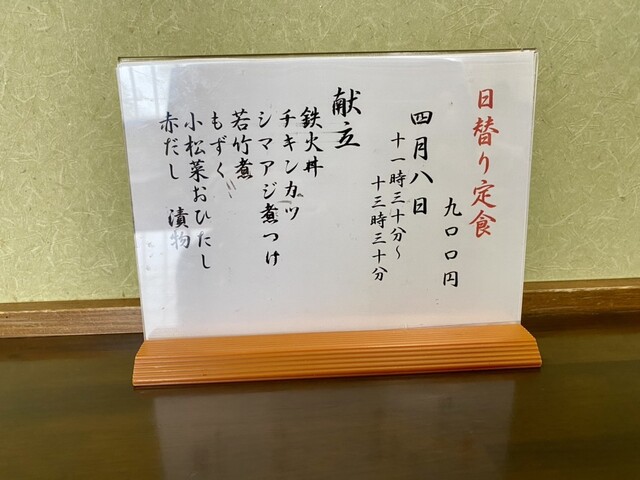 日替り定食
九〇〇円
四月八日
十一時三十分～
十三時三十分
献立
鉄火丼
チキンカツ
シマアジ煮つけ
若竹煮
もずく
小松菜おひたし
赤だし 漬物